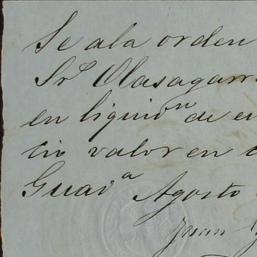 Se a la orden
Sr. Olasagarr
en liquidn de
cio valor en
Guaia Agosto
Juan